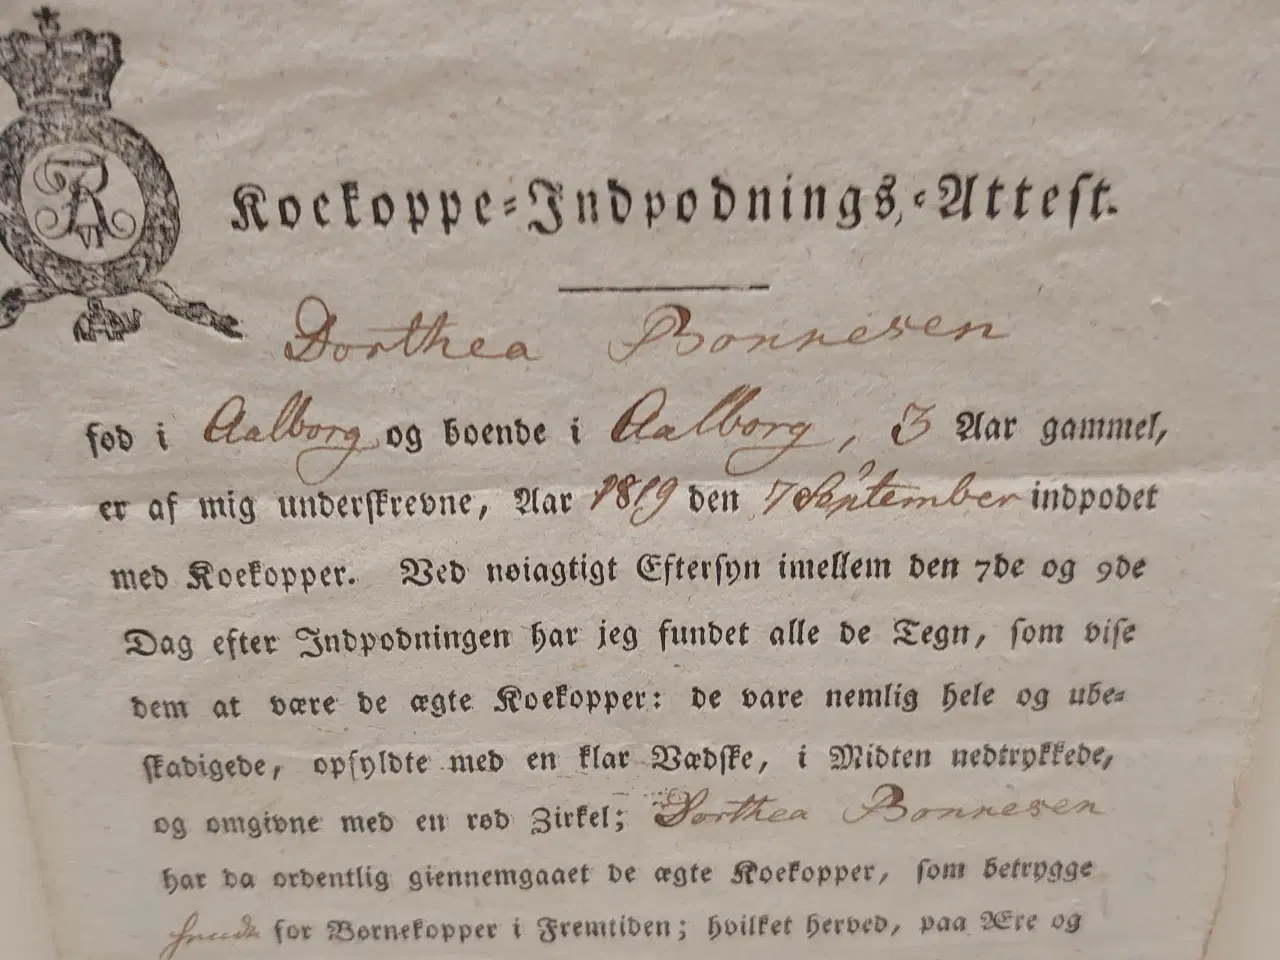 FR VI
Koekoppe-Indpodnings-Attest.
Dorthea Bonnesen
fød i Aalborg og boende i Aalborg, 3 Aar gammel,
er af mig underskrevne, Aar 1819 den 7 September indpodet
med Koekopper. Ved nøiagtigt Eftersyn imellem den 7de og 9de
Dag efter Indpodningen har jeg fundet alle de Tegn, som vise
dem at være de ægte Koekopper: de vare nemlig hele og ube-
skadigede, opfyldte med en klar Vædske, i Midten nedtrykkede,
og omgivne med en rød Zirkel; Dorthea Bonnesen
har da ordentlig giennemgaaet de ægte Koekopper, som betrygge
for Børnekopper i Fremtiden; hvilket herved, paa Ære og